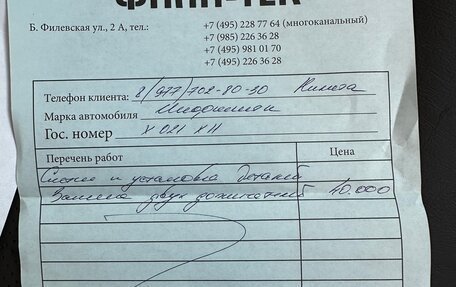 ФИЛИ-ТЕК
Б. Филевская ул., 2 А, тел.:
+7 (495) 228 77 64 (многоканальный)
+7 (985) 226 36 28
+7 (495) 981 01 70
+7 (495) 226 36 28
Телефон клиента: 8/977/702-80-50 Никита
Марка автомобиля
Гос. номер Х 021 ХН
Перечень работ Цена
Снятие и установка деталей
Замена двух 10.000